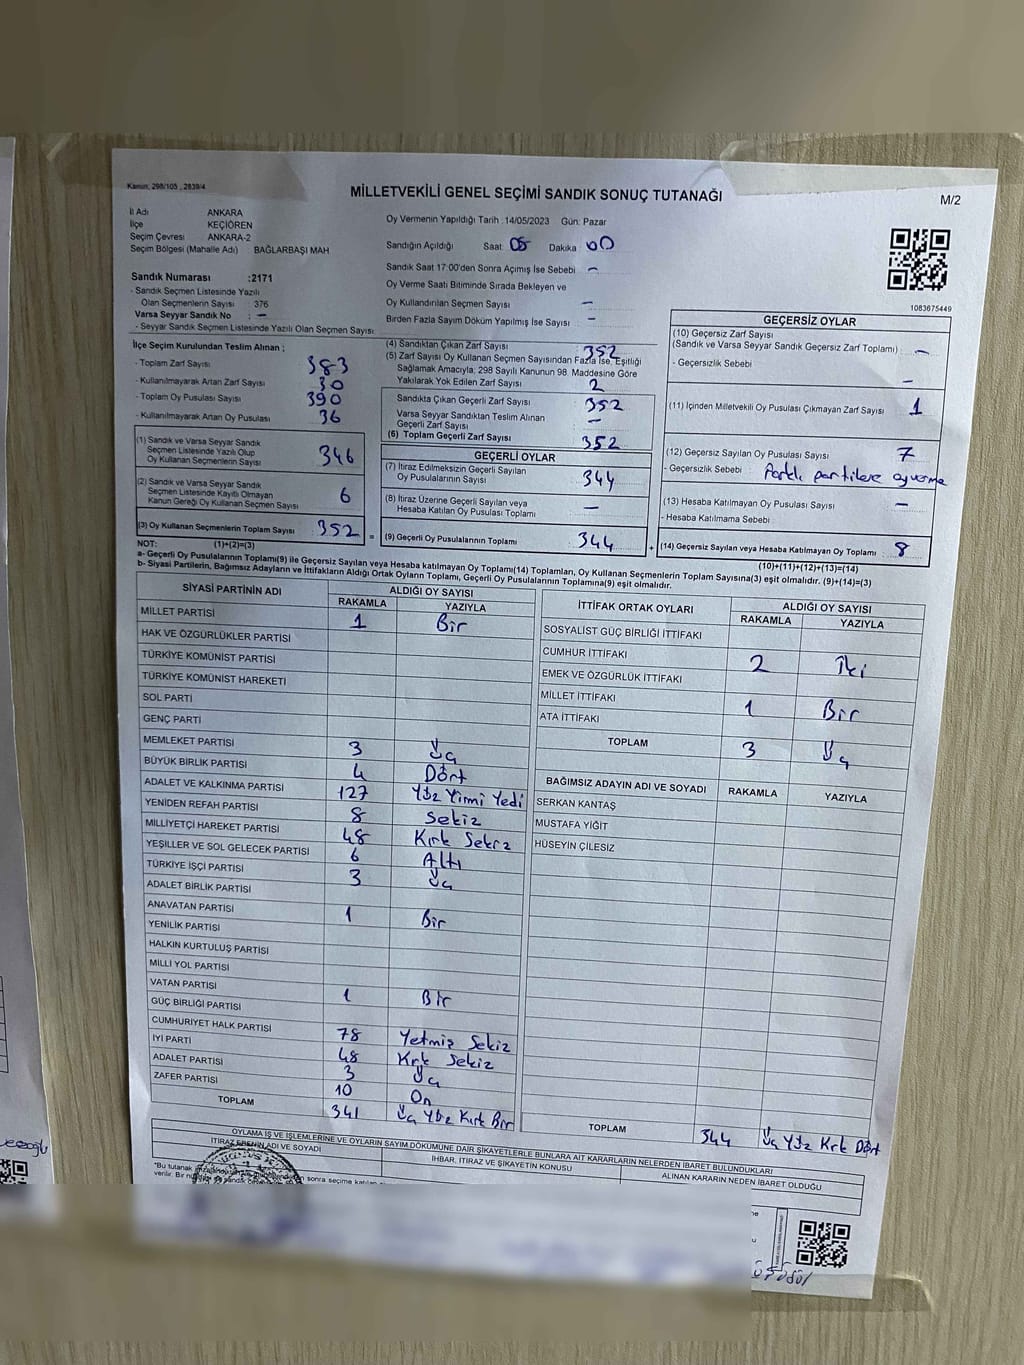 Kanun; 298/105 , 2839/4
MİLLETVEKİLİ GENEL SEÇİMİ SANDIK SONUÇ TUTANAĞI
M/2
İl Adı ANKARA
İlçe KEÇİÖREN
Seçim Çevresi ANKARA-2
Seçim Bölgesi (Mahalle Adı) BAĞLARBAŞI MAH
Sandık Numarası :2171
- Sandık Seçmen Listesinde Yazılı
Olan Seçmenlerin Sayısı 376
Varsa Seyyar Sandık No : —
- Seyyar Sandık Seçmen Listesinde Yazılı Olan Seçmen Sayısı:
Oy Vermenin Yapıldığı Tarih :14/05/2023 Gün: Pazar
Sandığın Açıldığı Saat: 05 Dakika 00
Sandık Saat 17:00'den Sonra Açımış İse Sebebi —
Oy Verme Saati Bitiminde Sırada Bekleyen ve
Oy Kullandırılan Seçmen Sayısı —
Birden Fazla Sayım Döküm Yapılmış İse Sayısı —
1083675449
İlçe Seçim Kurulundan Teslim Alınan ;
- Toplam Zarf Sayısı 383
- Kullanılmayarak Artan Zarf Sayısı 30
- Toplam Oy Pusulası Sayısı 390
- Kullanılmayarak Artan Oy Pusulası 36
(1) Sandık ve Varsa Seyyar Sandık
Seçmen Listesinde Yazılı Olup
Oy Kullanan Seçmenlerin Sayısı 346
(2) Sandık ve Varsa Seyyar Sandık
Seçmen Listesinde Kayıtlı Olmayan
Kanun Gereği Oy Kullanan Seçmen Sayısı 6
(3) Oy Kullanan Seçmenlerin Toplam Sayısı 352
(4) Sandıktan Çıkan Zarf Sayısı 352
(5) Zarf Sayısı Oy Kullanan Seçmen Sayısından Fazla İse, Eşitliği
Sağlamak Amacıyla; 298 Sayılı Kanunun 98. Maddesine Göre
Yakılarak Yok Edilen Zarf Sayısı 2
Sandıkta Çıkan Geçerli Zarf Sayısı 352
Varsa Seyyar Sandıktan Teslim Alınan
Geçerli Zarf Sayısı —
(6) Toplam Geçerli Zarf Sayısı 352
GEÇERLİ OYLAR
(7) İtiraz Edilmeksizin Geçerli Sayılan
Oy Pusulalarının Sayısı 344
(8) İtiraz Üzerine Geçerli Sayılan veya
Hesaba Katılan Oy Pusulası Toplamı —
= (9) Geçerli Oy Pusulalarının Toplamı 344
GEÇERSİZ OYLAR
(10) Geçersiz Zarf Sayısı
(Sandık ve Varsa Seyyar Sandık Geçersiz Zarf Toplamı) —
- Geçersizlik Sebebi —
(11) İçinden Milletvekili Oy Pusulası Çıkmayan Zarf Sayısı 1
(12) Geçersiz Sayılan Oy Pusulası Sayısı 7
- Geçersizlik Sebebi Farklı partilere oy verme
(13) Hesaba Katılmayan Oy Pusulası Sayısı —
- Hesaba Katılmama Sebebi
+ (14) Geçersiz Sayılan veya Hesaba Katılmayan Oy Toplamı 8
NOT: (1)+(2)=(3)
(10)+(11)+(12)+(13)=(14)
a- Geçerli Oy Pusulalarının Toplamı(9) ile Geçersiz Sayılan veya Hesaba katılmayan Oy Toplamı(14) Toplamları, Oy Kullanan Seçmenlerin Toplam Sayısına(3) eşit olmalıdır. (9)+(14)=(3)
b- Siyasi Partilerin, Bağımsız Adayların ve İttifakların Aldığı Ortak Oyların Toplamı, Geçerli Oy Pusulalarının Toplamına(9) eşit olmalıdır.
SİYASİ PARTİNİN ADI ALDIĞI OY SAYISI
RAKAMLA YAZIYLA
MİLLET PARTİSİ 1 Bir
HAK VE ÖZGÜRLÜKLER PARTİSİ
TÜRKİYE KOMÜNİST PARTİSİ
TÜRKİYE KOMÜNİST HAREKETİ
SOL PARTİ
GENÇ PARTİ
MEMLEKET PARTİSİ 3 Üç
BÜYÜK BİRLİK PARTİSİ 4 Dört
ADALET VE KALKINMA PARTİSİ 127 Yüz Yirmi Yedi
YENİDEN REFAH PARTİSİ 8 Sekiz
MİLLİYETÇİ HAREKET PARTİSİ 48 Kırk Sekiz
YEŞİLLER VE SOL GELECEK PARTİSİ 6 Altı
TÜRKİYE İŞÇİ PARTİSİ 3 Üç
ADALET BİRLİK PARTİSİ
ANAVATAN PARTİSİ 1 Bir
YENİLİK PARTİSİ
HALKIN KURTULUŞ PARTİSİ
MİLLİ YOL PARTİSİ
VATAN PARTİSİ 1 Bir
GÜÇ BİRLİĞİ PARTİSİ
CUMHURİYET HALK PARTİSİ 78 Yetmiş Sekiz
İYİ PARTİ 48 Kırk Sekiz
ADALET PARTİSİ 3 Üç
ZAFER PARTİSİ 10 On
TOPLAM 341 Üç Yüz Kırk Bir
İTTİFAK ORTAK OYLARI ALDIĞI OY SAYISI
RAKAMLA YAZIYLA
SOSYALİST GÜÇ BİRLİĞİ İTTİFAKI
CUMHUR İTTİFAKI 2 İki
EMEK VE ÖZGÜRLÜK İTTİFAKI
MİLLET İTTİFAKI 1 Bir
ATA İTTİFAKI
TOPLAM 3 Üç
BAĞIMSIZ ADAYIN ADI VE SOYADI RAKAMLA YAZIYLA
SERKAN KANTAŞ
MUSTAFA YİĞİT
HÜSEYİN ÇİLESİZ
TOPLAM 344 Üç Yüz Kırk Dört
OYLAMA İŞ VE İŞLEMLERİNE VE OYLARIN SAYIM DÖKÜMÜNE DAİR ŞİKAYETLERLE BUNLARA AİT KARARLARIN NELERDEN İBARET BULUNDUKLARI
İTİRAZ EDENİN ADI VE SOYADI İHBAR, İTİRAZ VE ŞİKAYETİN KONUSU ALINAN KARARIN NEDEN İBARET OLDUĞU
"Bu tutanak
sonra seçime